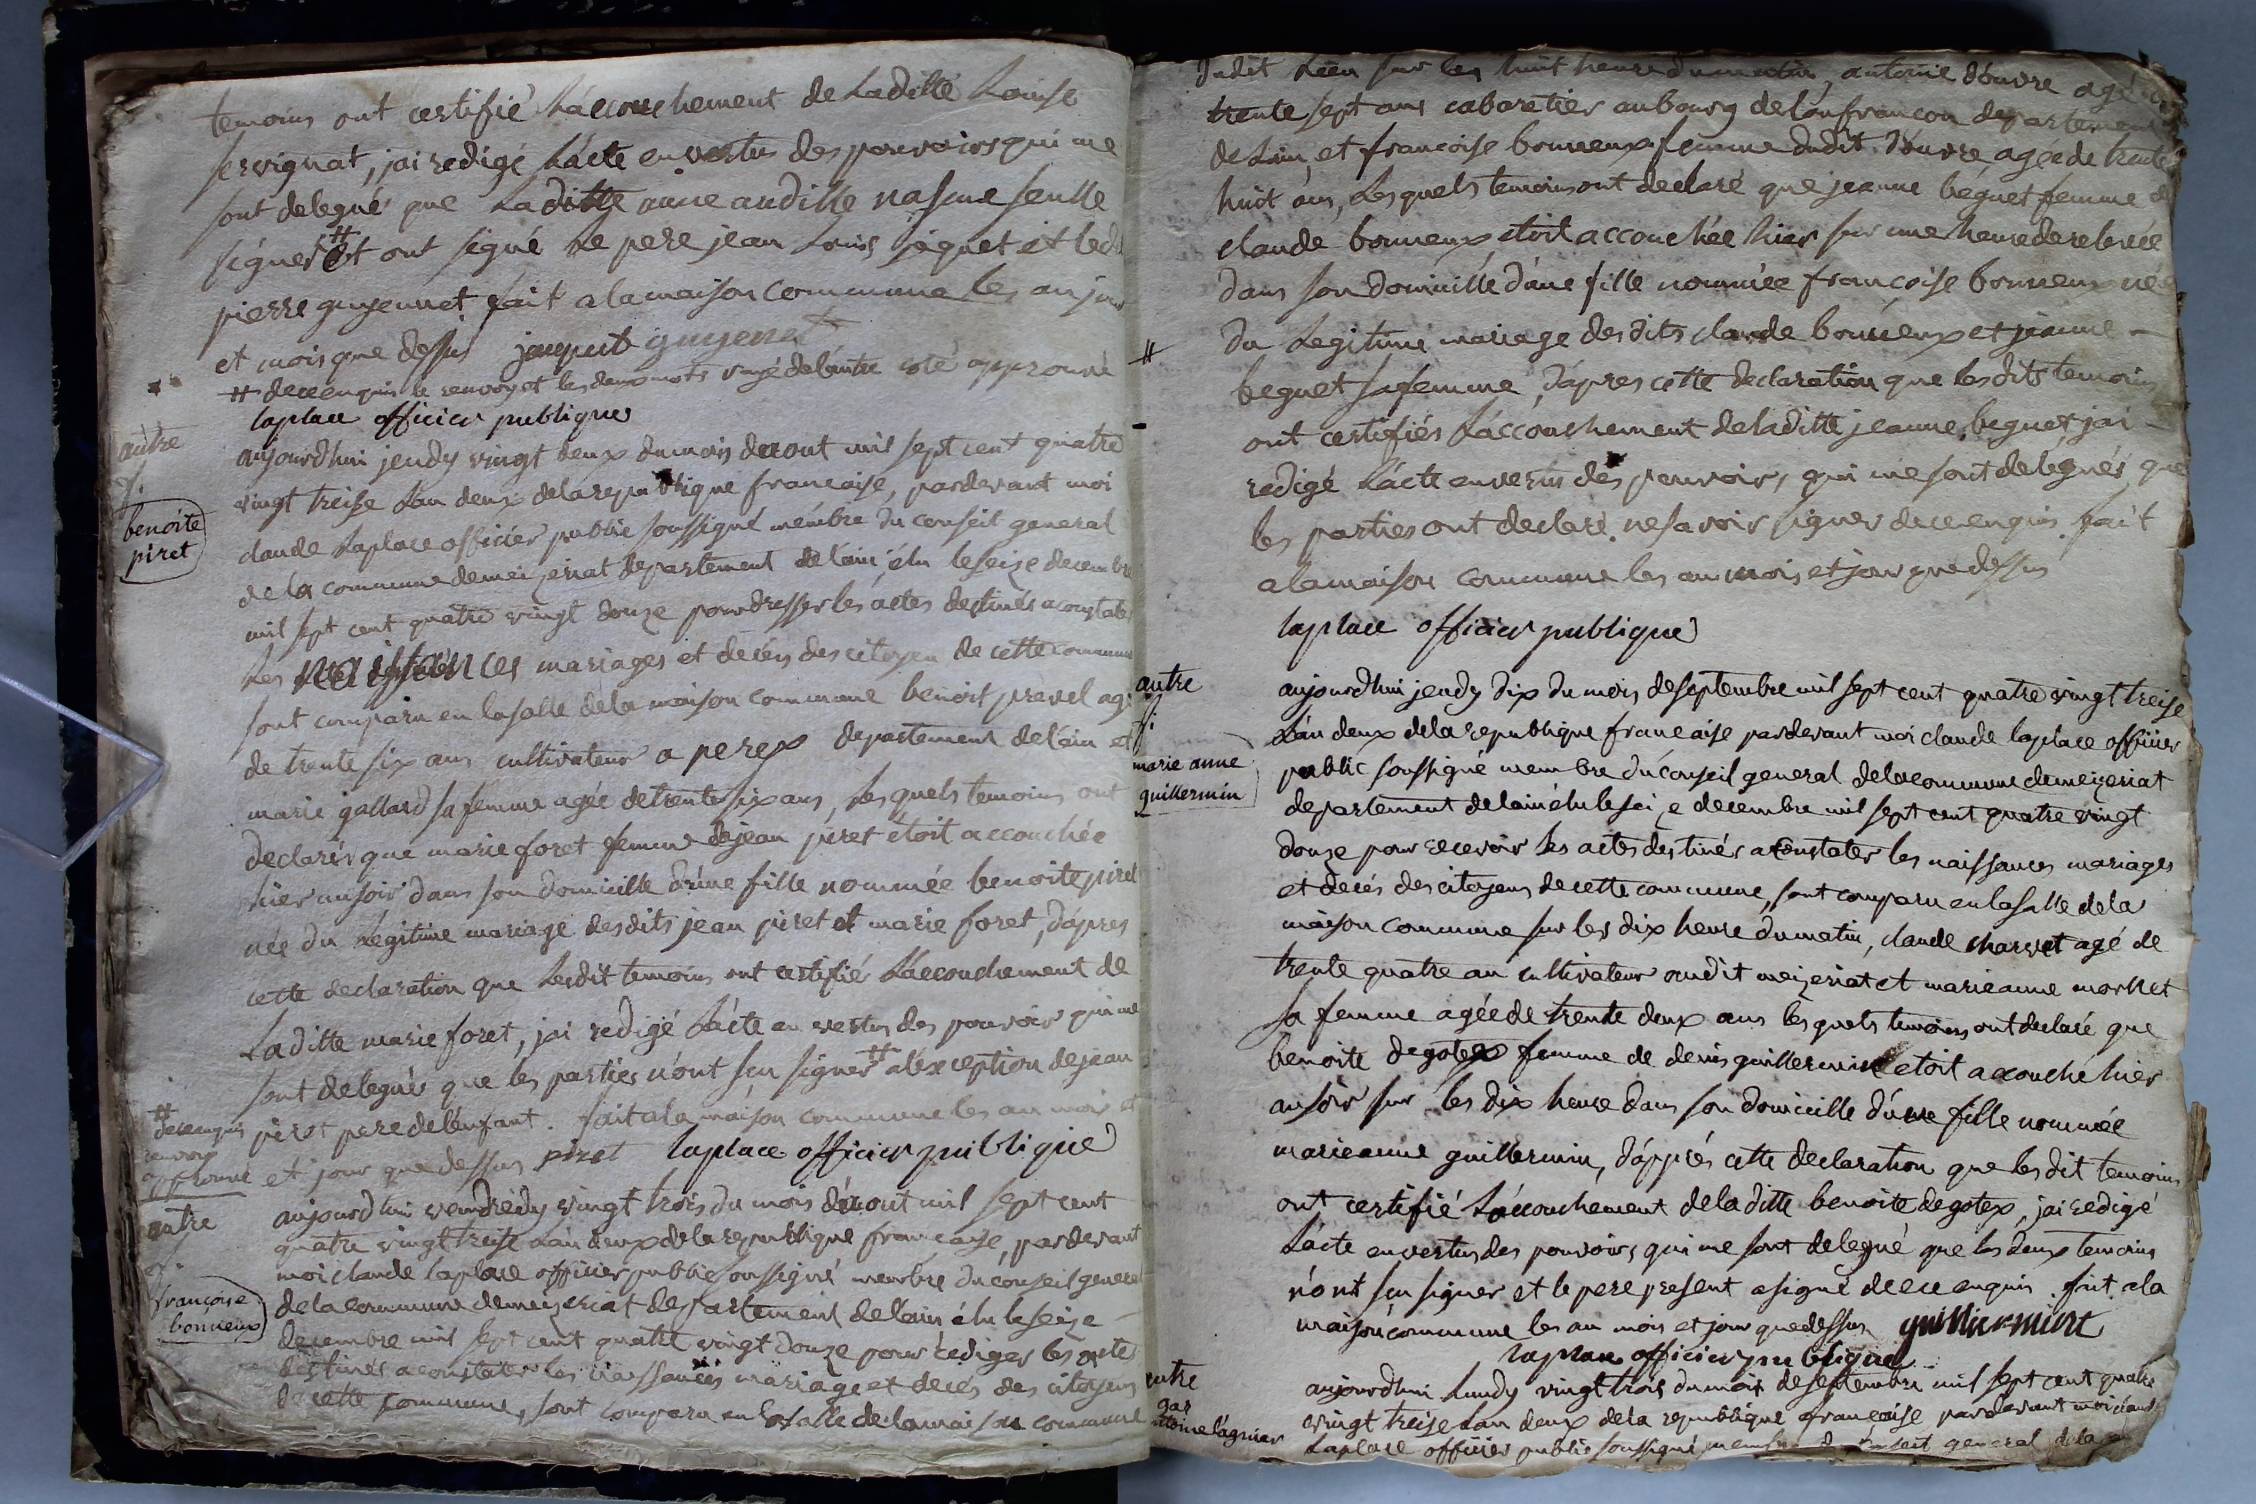 temoins ont certifié L'accouchement de Laditte Louise
servignat, jai redigé L'acte en vertus des pouvoirs qui me
sont delegués que Laditte anne andille na sçue seulle
signer # et ont signé Le pere jean Louis jaquet et ledit
pierre guyennet fait a la maison commune les an jour
et mois que dessus jaquet guyenet
# dece enquis le renvoy et les deux mots rayé de l'autre coté approuvé
laplace officier publique
autre
f.
benoite
piret
aujourdhui jeudy vingt deux du mois daout mil sept cent quatre
vingt treise Lan deux de la republique francaise, pardevant moi
claude Laplace officiér public soussigné membre du conseil general
de la commune de meizeriat departement de lain élu le seize decembre
mil sept cent quatre vingt douze pour dresser les actes destinés a constater
Les naissances mariages et decés des citoyen de cette commune
sont comparu en la salle de la maison commune benoit pravel agé
de trente six ans cultivateur a perex departement de l'ain et
marie gallard sa femme agée de trente six ans, Lesquels temoins ont
declarés que marie foret femme de jean piret étoit accouchée
hier au soir dans son domicille d'une fille nommée benoite piret
née du Légitime mariage desdits jean piret et marie foret, d'apres
cette declaration que Lesdit temoins ont certifié L'accouchement de
Laditte marie foret, jai redigé L'acte en vertus des pouvoir qui me
sont delegués que les parties n'ont sçu signer # a l'exception de jean
piret pere de l'enfant. fait a la maison commune les an mois et
et jour que dessus piret laplace officier publique
#
dece enquis
renvoy
approuvé
autre
f.
françoise
bonneux
aujourdhui vendredy vingt trois du mois d'aout mil sept cent
quatre vingt treise Lan deux de la republique francaise, pardevant
moi claude laplace officier public soussigné membre du conseil general
de la commune de meizeriat departement de l'ain élu le seize
decembre mil sept cent quatre vingt douze pour rediger les actes
destinés a constater les naissances mariage et decés des citoyens
de cette commune, sont comparu en la salle de la maison commune
dudit Lieu sur les huit heure du matin, antoine douvre agé de
trente sept ans cabaretier au bourg de confrancon departement
de Lain, et francoise bonneux femme dudit douvre agée de trente
huit ans, Lesquels temoins ont declaré que jeanne béguet femme de
claude bonneux étoit accouchée hier sur une heure de relevée
dans son domicille d'une fille nommée francoise bonneux née
#
du Legitime mariage desdits claude bonneux et jeanne
beguet sa femme, d'apres cette declaration que les dits temoins
ont certifiés L'accouchement de laditte jeanne beguet jai
redigé L'acte en vertus des pouvoirs, qui me sont delegués que
les parties ont declaré ne savoir signer dece enquis. fait
a la maison commune les an mois et jour que dessus
laplace officier publique
autre
f.
marie anne
guillermin
aujourdhui jeudy dix du mois de septembre mil sept cent quatre vingt treise
L'an deux de la republique francaise pardevant moi claude laplace officier
public soussigné membre du conseil general de la commune de meizeriat
departement de lain élu le seize decembre mil sept cent quatre vingt
douze pour recevoir les actes destinés a constater les naissances mariages
et decés des citoyens de cette commune, sont comparu en la salle de la
maison commune sur les dix heure du matin, claude charvet agé de
trente quatre an cultivateur audit meizeriat et marieanne morket
sa femme agée de trente deux ans lesquels temoins ont declaré que
benoite degotex femme de denis guillermin etoit accouché hier
au soir sur les dix heure dans son domicille d'une fille nommée
marieanne guillermin, d'apprés cette declaration que les dit temoins
ont certifié L'accouchement de laditte benoite degotex, jai redigé
L'acte en vertus des pouvoirs qui me sont delegué que les deux temoins
n'ont sçu signer et le pere present a signé dece enquis. fait a la
maison commune les an mois et jour que dessus guilliermint
laplace officier publique
autre
gar
antoine lagnier
aujourdhui Lundy vingt trois du mois de septembre mil sept cent quatre
vingt treise Lan deux de la republique francaise pardevant moi claude
Laplace officier public soussigné membre du conseil general de la